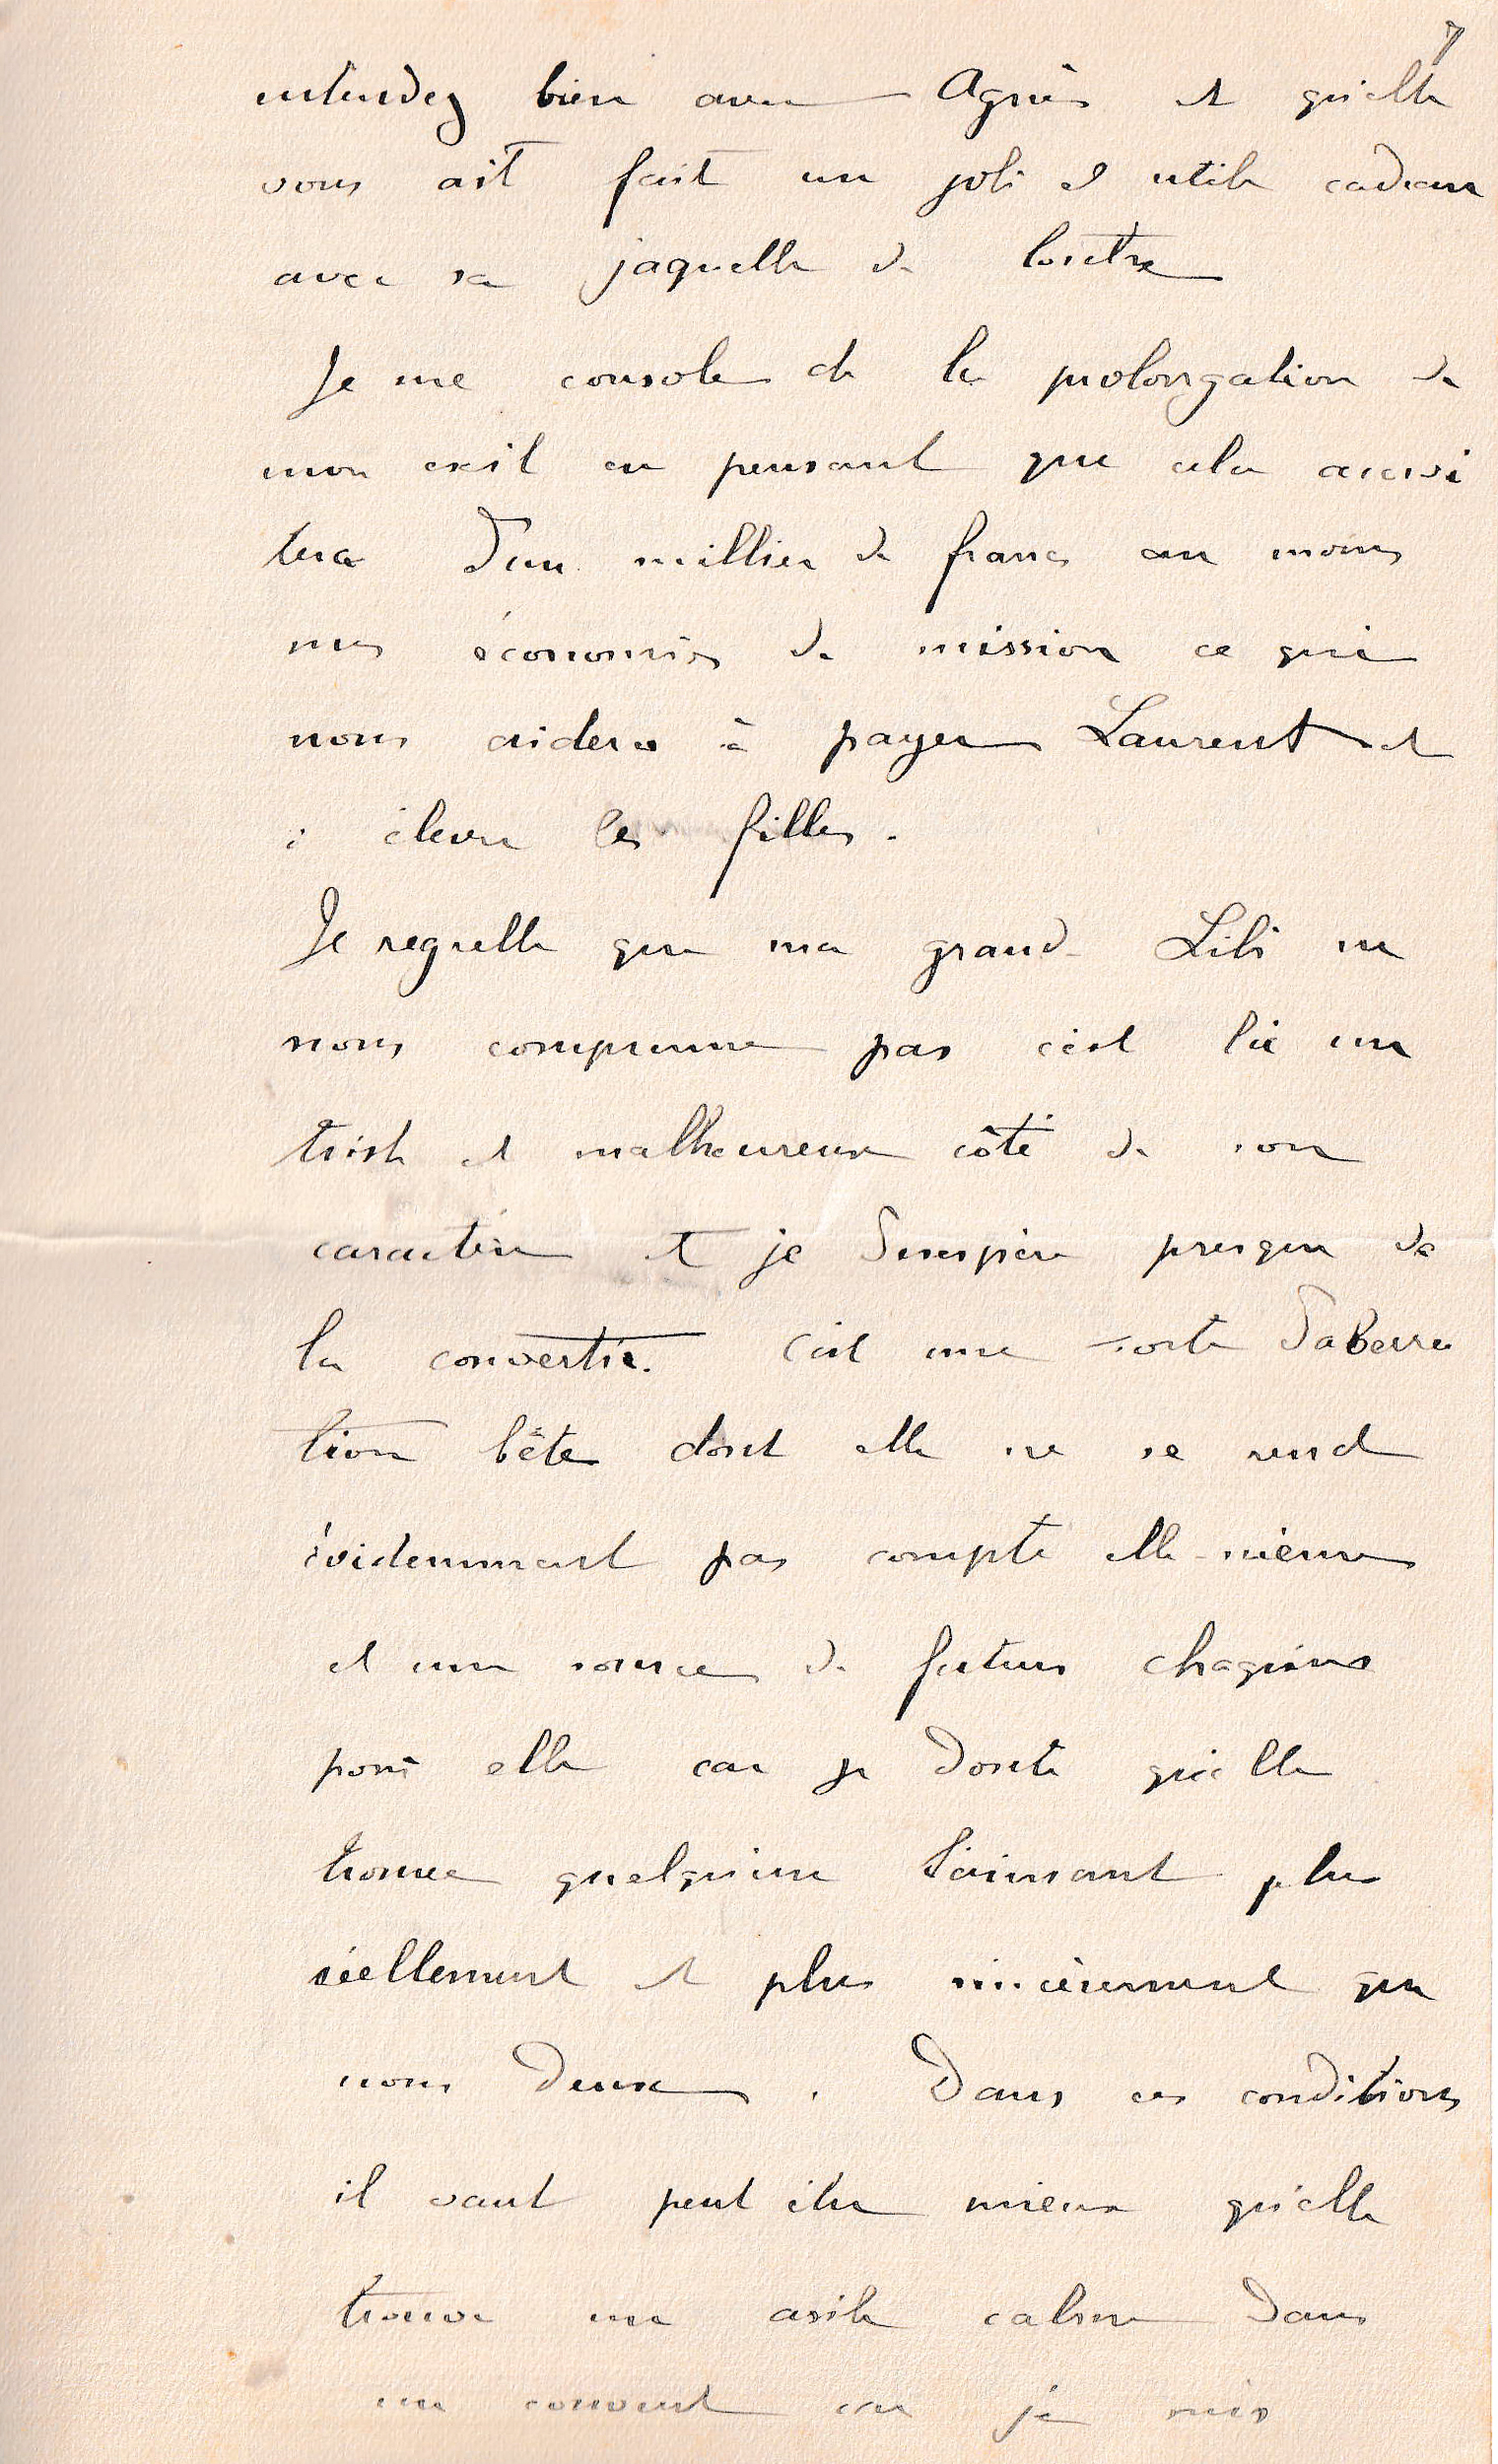 7
entendez bien avec Agnès et qu'elle
vous ait fait un joli et utile cadeau
avec sa jaquette de loutre
Je me console de la prolongation de
mon exil en pensant que cela accroi
tera d'un millier de francs au moins
mes économies de mission ce qui
nous aidera à payer Laurent et
à élever les filles.
Je regrette que ma grande Lili ne
nous comprenne pas c'est là un
triste et malheureux côté de son
caractère et je désespère presque de
la convertir. C'est une sorte d'aberra
tion bête dont elle ne se rend
évidemment pas compte elle-même
et une source de futurs chagrins
pour elle car je doute qu'elle
trouve quelqu'un l'aimant plus
réellement et plus sincèrement que
nous deux. Dans ces conditions
il vaut peut être mieux qu'elle
trouve un asile calme dans
un couvent car je suis